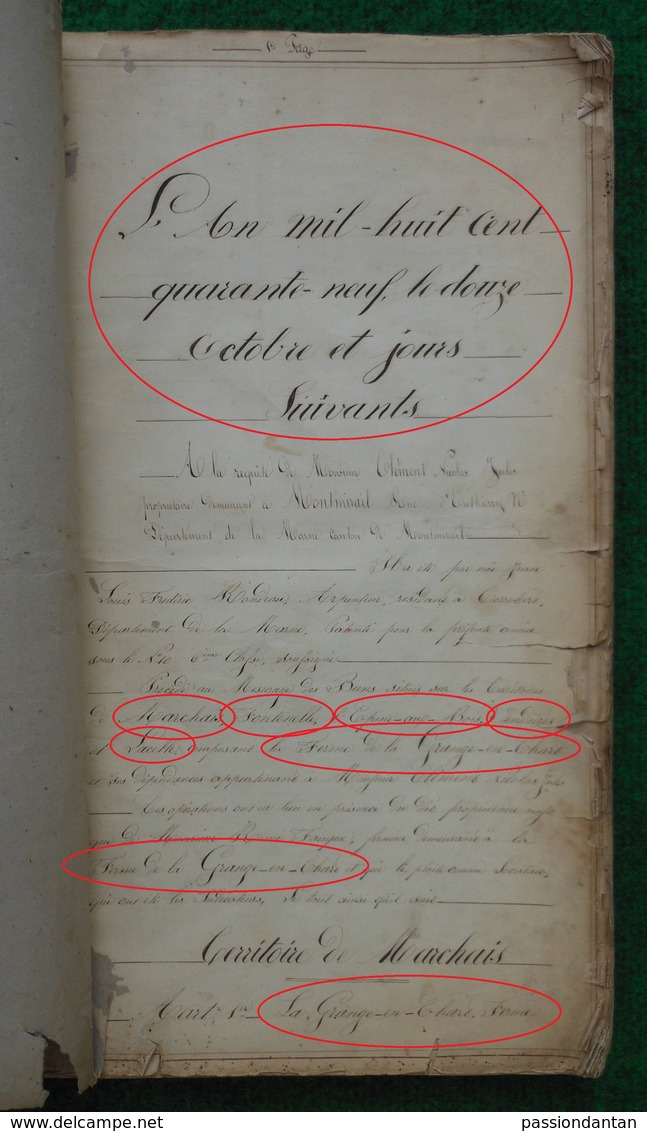 1re Page
L'An mil-huit Cent
quarante-neuf, le douze
Octobre et jours
Suivants
A la requête de Monsieur Clément Nicolas Jules
propriétaire demeurant à Montmirail
Département de la Marne canton de Montmirail
Il a été par moi Jean
Louis Frédéric Rondeau, Arpenteur, résidant à Corrobert,
Département de la Marne, Patenté pour la présente année
sous le No 10 6ème Classe, soussigné
Procédé au Mesurage des Biens situés sur les territoires
de Marchais, Fontenelle, l'Epine-aux-Bois, Vendières
et composant la Ferme de la Grange-en-Chart
et ses Dépendances appartenant à Monsieur Clément Nicolas Jules
Ces opérations ont eu lieu en présence du dit propriétaire
que de Monsieur fermier demeurant à la
Ferme de la Grange-en-Chart et qui le comme locataire,
qui ont été les Indicateurs, Le tout ainsi qu'il suit
Territoire de Marchais
Art. 1er La Grange-en-Chart, Ferme
passiondantan